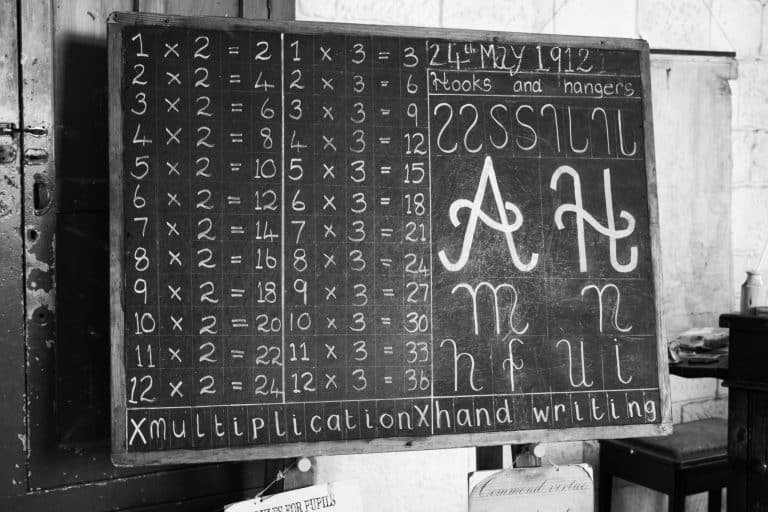 1 x 2 = 2
2 x 2 = 4
3 x 2 = 6
4 x 2 = 8
5 x 2 = 10
6 x 2 = 12
7 x 2 = 14
8 x 2 = 16
9 x 2 = 18
10 x 2 = 20
11 x 2 = 22
12 x 2 = 24
1 x 3 = 3
2 x 3 = 6
3 x 3 = 9
4 x 3 = 12
5 x 3 = 15
6 x 3 = 18
7 x 3 = 21
8 x 3 = 24
9 x 3 = 27
10 x 3 = 30
11 x 3 = 33
12 x 3 = 36
XmultiplicationX
24th May 1912
Hooks and hangers
A H
m n
h f u i
hand writing
FOR PUPILS
Commend virtue